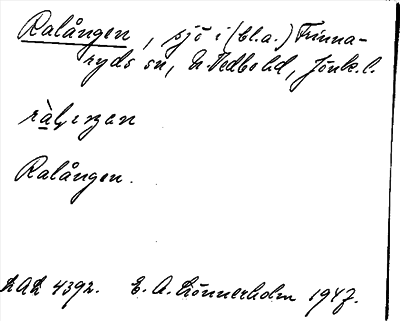 Ralången, sjö i (bl.a.) Frinna-
ryds sn, N. Vedbo hd, Jönk. l.
Ralången.
LAL 4392. E. A. Lönnerholm 1947.